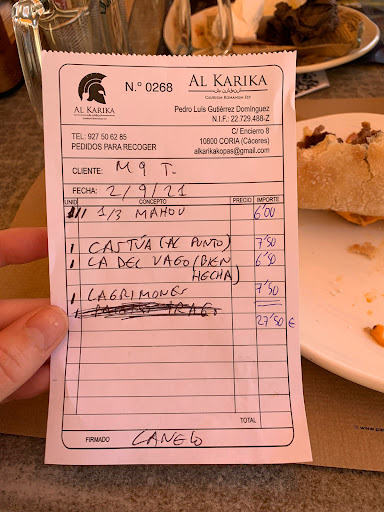 N.º 0268
AL KARIKA
AL KARIKA
Pedro Luis Gutiérrez Domínguez
N.I.F.: 22.729.488-Z
TEL: 927 50 62 85
PEDIDOS PARA RECOGER
C/ Encierro 8
10800 CORIA (Cáceres)
alkarikakopas@gmail.com
CLIENTE: M 9 T.
FECHA: 2/9/21
UNID CONCEPTO PRECIO IMPORTE
III 1/3 MAHOU 6'00
1 CASTÚA (AL PUNTO) 7'50
1 LA DEL VAGO (BIEN HECHA) 6'50
1 LAGRIMONES 7'50
1
27'50 €
TOTAL
FIRMADO CANELO